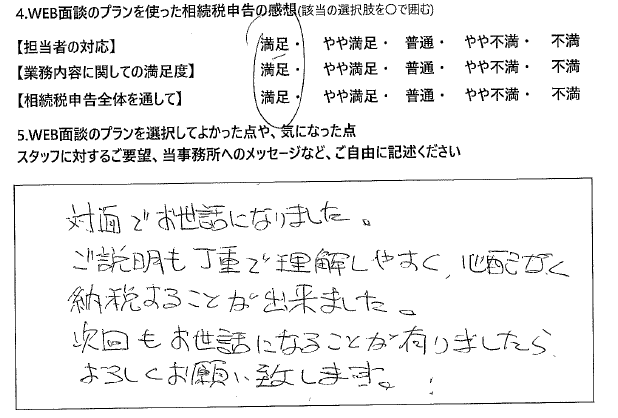 4.WEB面談のプランを使った相続税申告の感想(該当の選択肢を〇で囲む)
【担当者の対応】 満足・ やや満足・ 普通・ やや不満・ 不満
【業務内容に関しての満足度】 満足・ やや満足・ 普通・ やや不満・ 不満
【相続税申告全体を通して】 満足・ やや満足・ 普通・ やや不満・ 不満
5.WEB面談のプランを選択してよかった点や、気になった点
スタッフに対するご要望、当事務所へのメッセージなど、ご自由に記述ください
対面でお世話になりました。
ご説明も丁重で理解しやすく、心配なく
納税することが出来ました。
次回もお世話になることが有りましたら
よろしくお願い致します。